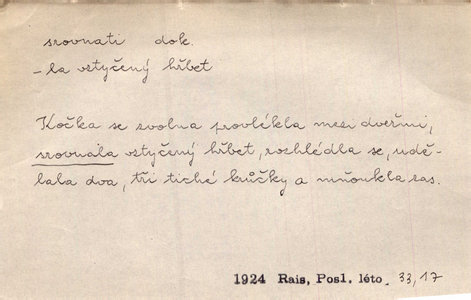 srovnati dok.
-la vztyčený hřbet
Kočka se zvolna provlékla mezi dveřmi,
srovnala vztyčený hřbet, rozhlédla se, udě-
lala dva, tři tiché krůčky a mňoukla zas.
1924 Rais, Posl. léto, 33,17